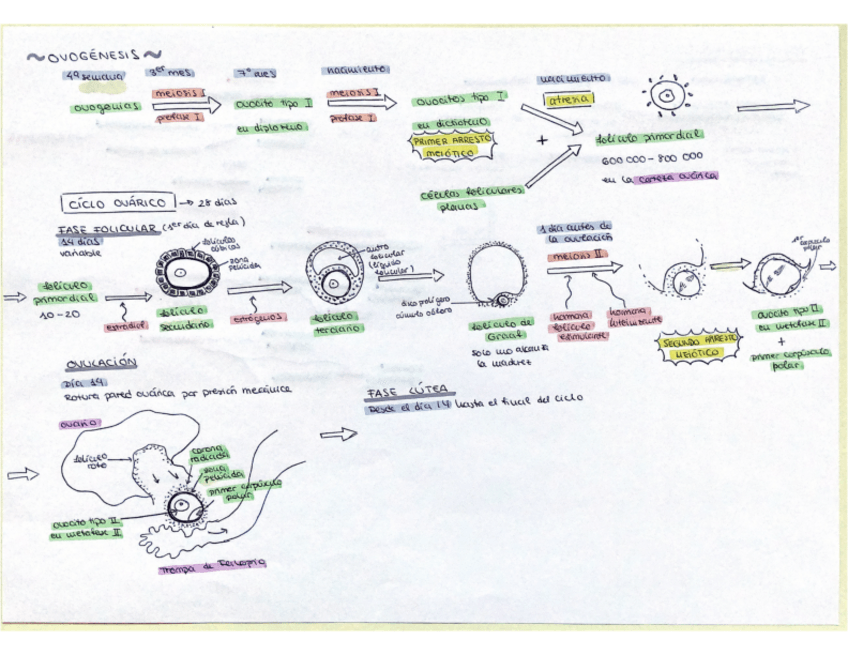 ~OVOGÉNESIS~
4ª semana 3er mes 7º mes nacimiento nacimiento
ovogonias
meiosis I
profase I
ovocito tipo I
en diploteno
meiosis I
profase I
ovocitos tipo I
en dictioteno
PRIMER ARRESTO
MEIÓTICO
+
células foliculares
planas
atresia
folículo primordial
600 000 - 800 000
en la corteza ovárica
CICLO OVÁRICO → 28 días
FASE FOLICULAR (1er día de regla)
14 días
variable
folículo
primordial
10-20
estradiol
folículos
cúbicas
zona
pelúcida
folículo
secundario
estrógenos
antro
folicular
(líquido
folicular)
folículo
terciario
disco prolígero
cúmulo oóforo
folículo de
Graaf
solo uno alcanza
la madurez
1 día antes de
la ovulación
meiosis II
hormona
folículo
estimulante
hormona
luteinizante
SEGUNDO ARRESTO
MEIÓTICO
1er corpúsculo
polar
ovocito tipo II
en metafase II
+
primer corpúsculo
polar
OVULACIÓN
Día 14
Rotura pared ovárica por presión mecánica
ovario
folículo
roto
corona
radiada
zona
pelúcida
primer corpúsculo
polar
ovocito tipo II
en metafase II
Trompa de Falopio
FASE LÚTEA
Desde el día 14 hasta el final del ciclo